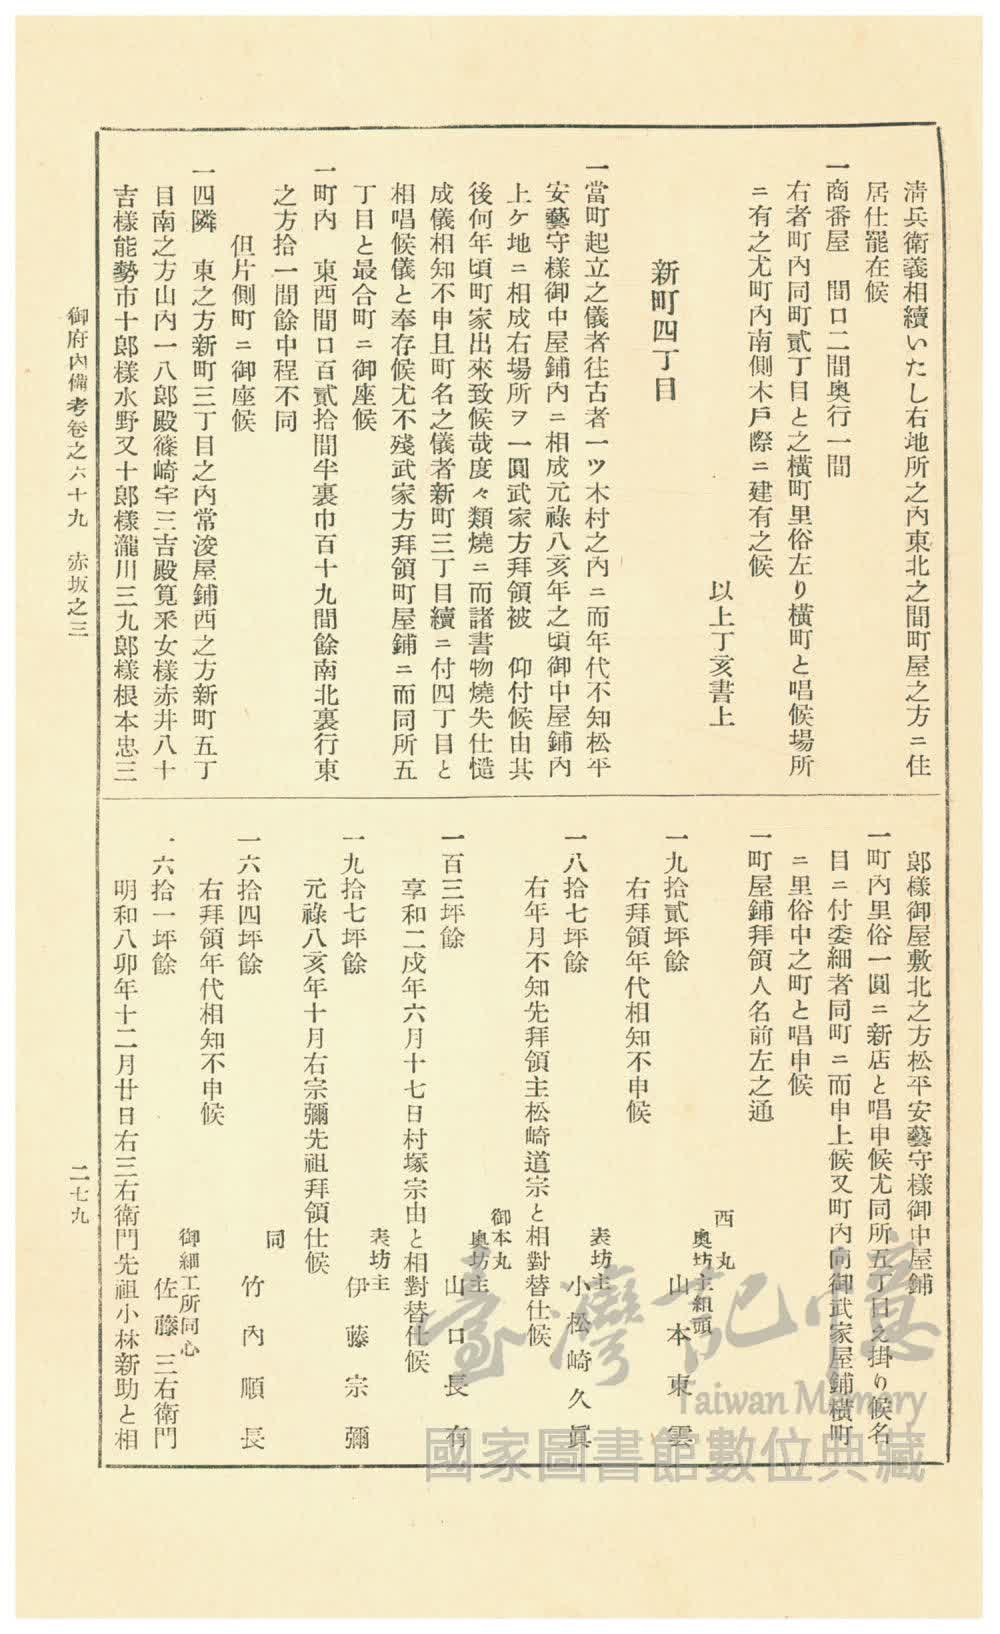 淸兵衛義相續いたし右地所之內東北之間町屋之方ニ住
居仕罷在候
一商番屋　間口二間奧行一間
右者町內同町貳丁目と之橫町里俗左り橫町と唱候場所
ニ有之尤町內南側木戶際ニ建有之候
以上丁亥書上
新町四丁目
一當町起立之儀者往古者一ツ木村之內ニ而年代不知松平
安藝守樣御中屋鋪內ニ相成元祿八亥年之頃御中屋鋪內
上ケ地ニ相成右場所ヲ一圓武家方拜領被　仰付候由其
後何年頃町家出來致候哉度々類燒ニ而諸書物燒失仕慥
成儀相知不申且町名之儀者新町三丁目續ニ付四丁目と
相唱候儀と奉存候尤不殘武家方拜領町屋鋪ニ而同所五
丁目と最合町ニ御座候
一町內　東西間口百貳拾間半裏巾百十九間餘南北裏行東
之方拾一間餘中程不同
但片側町ニ御座候
一四隣　東之方新町三丁目之內常浚屋鋪西之方新町五丁
目南之方山內一八郎殿篠崎宇三吉殿筧釆女樣赤井八十
吉樣能勢市十郎樣水野又十郎樣瀧川三九郎樣根本忠三
郎樣御屋敷北之方松平安藝守樣御中屋鋪
一町內里俗一圓ニ新店と唱申候尤同所五丁目え掛り候名
目ニ付委細者同町ニ而申上候又町內向御武家屋鋪橫町
ニ里俗中之町と唱申候
一町屋鋪拜領人名前左之通
西丸
奧坊主組頭
一九拾貳坪餘　山本東雲
右拜領年代相知不申候
表坊主
一八拾七坪餘　小松崎久眞
右年月不知先拜領主松崎道宗と相對替仕候
御本丸
奧坊主
一百三坪餘　山口長有
享和二戌年六月十七日村塚宗由と相對替仕候
表坊主
一九拾七坪餘　伊藤宗彌
元祿八亥年十月右宗彌先祖拜領仕候
同
一六拾四坪餘　竹內順長
右拜領年代相知不申候
御細工所同心
一六拾一坪餘　佐藤三右衛門
明和八卯年十二月廿日右三右衛門先祖小林新助と相
御府內備考卷之六十九　赤坂之三
二七九
臺灣記憶
Taiwan Memory
國家圖書館數位典藏